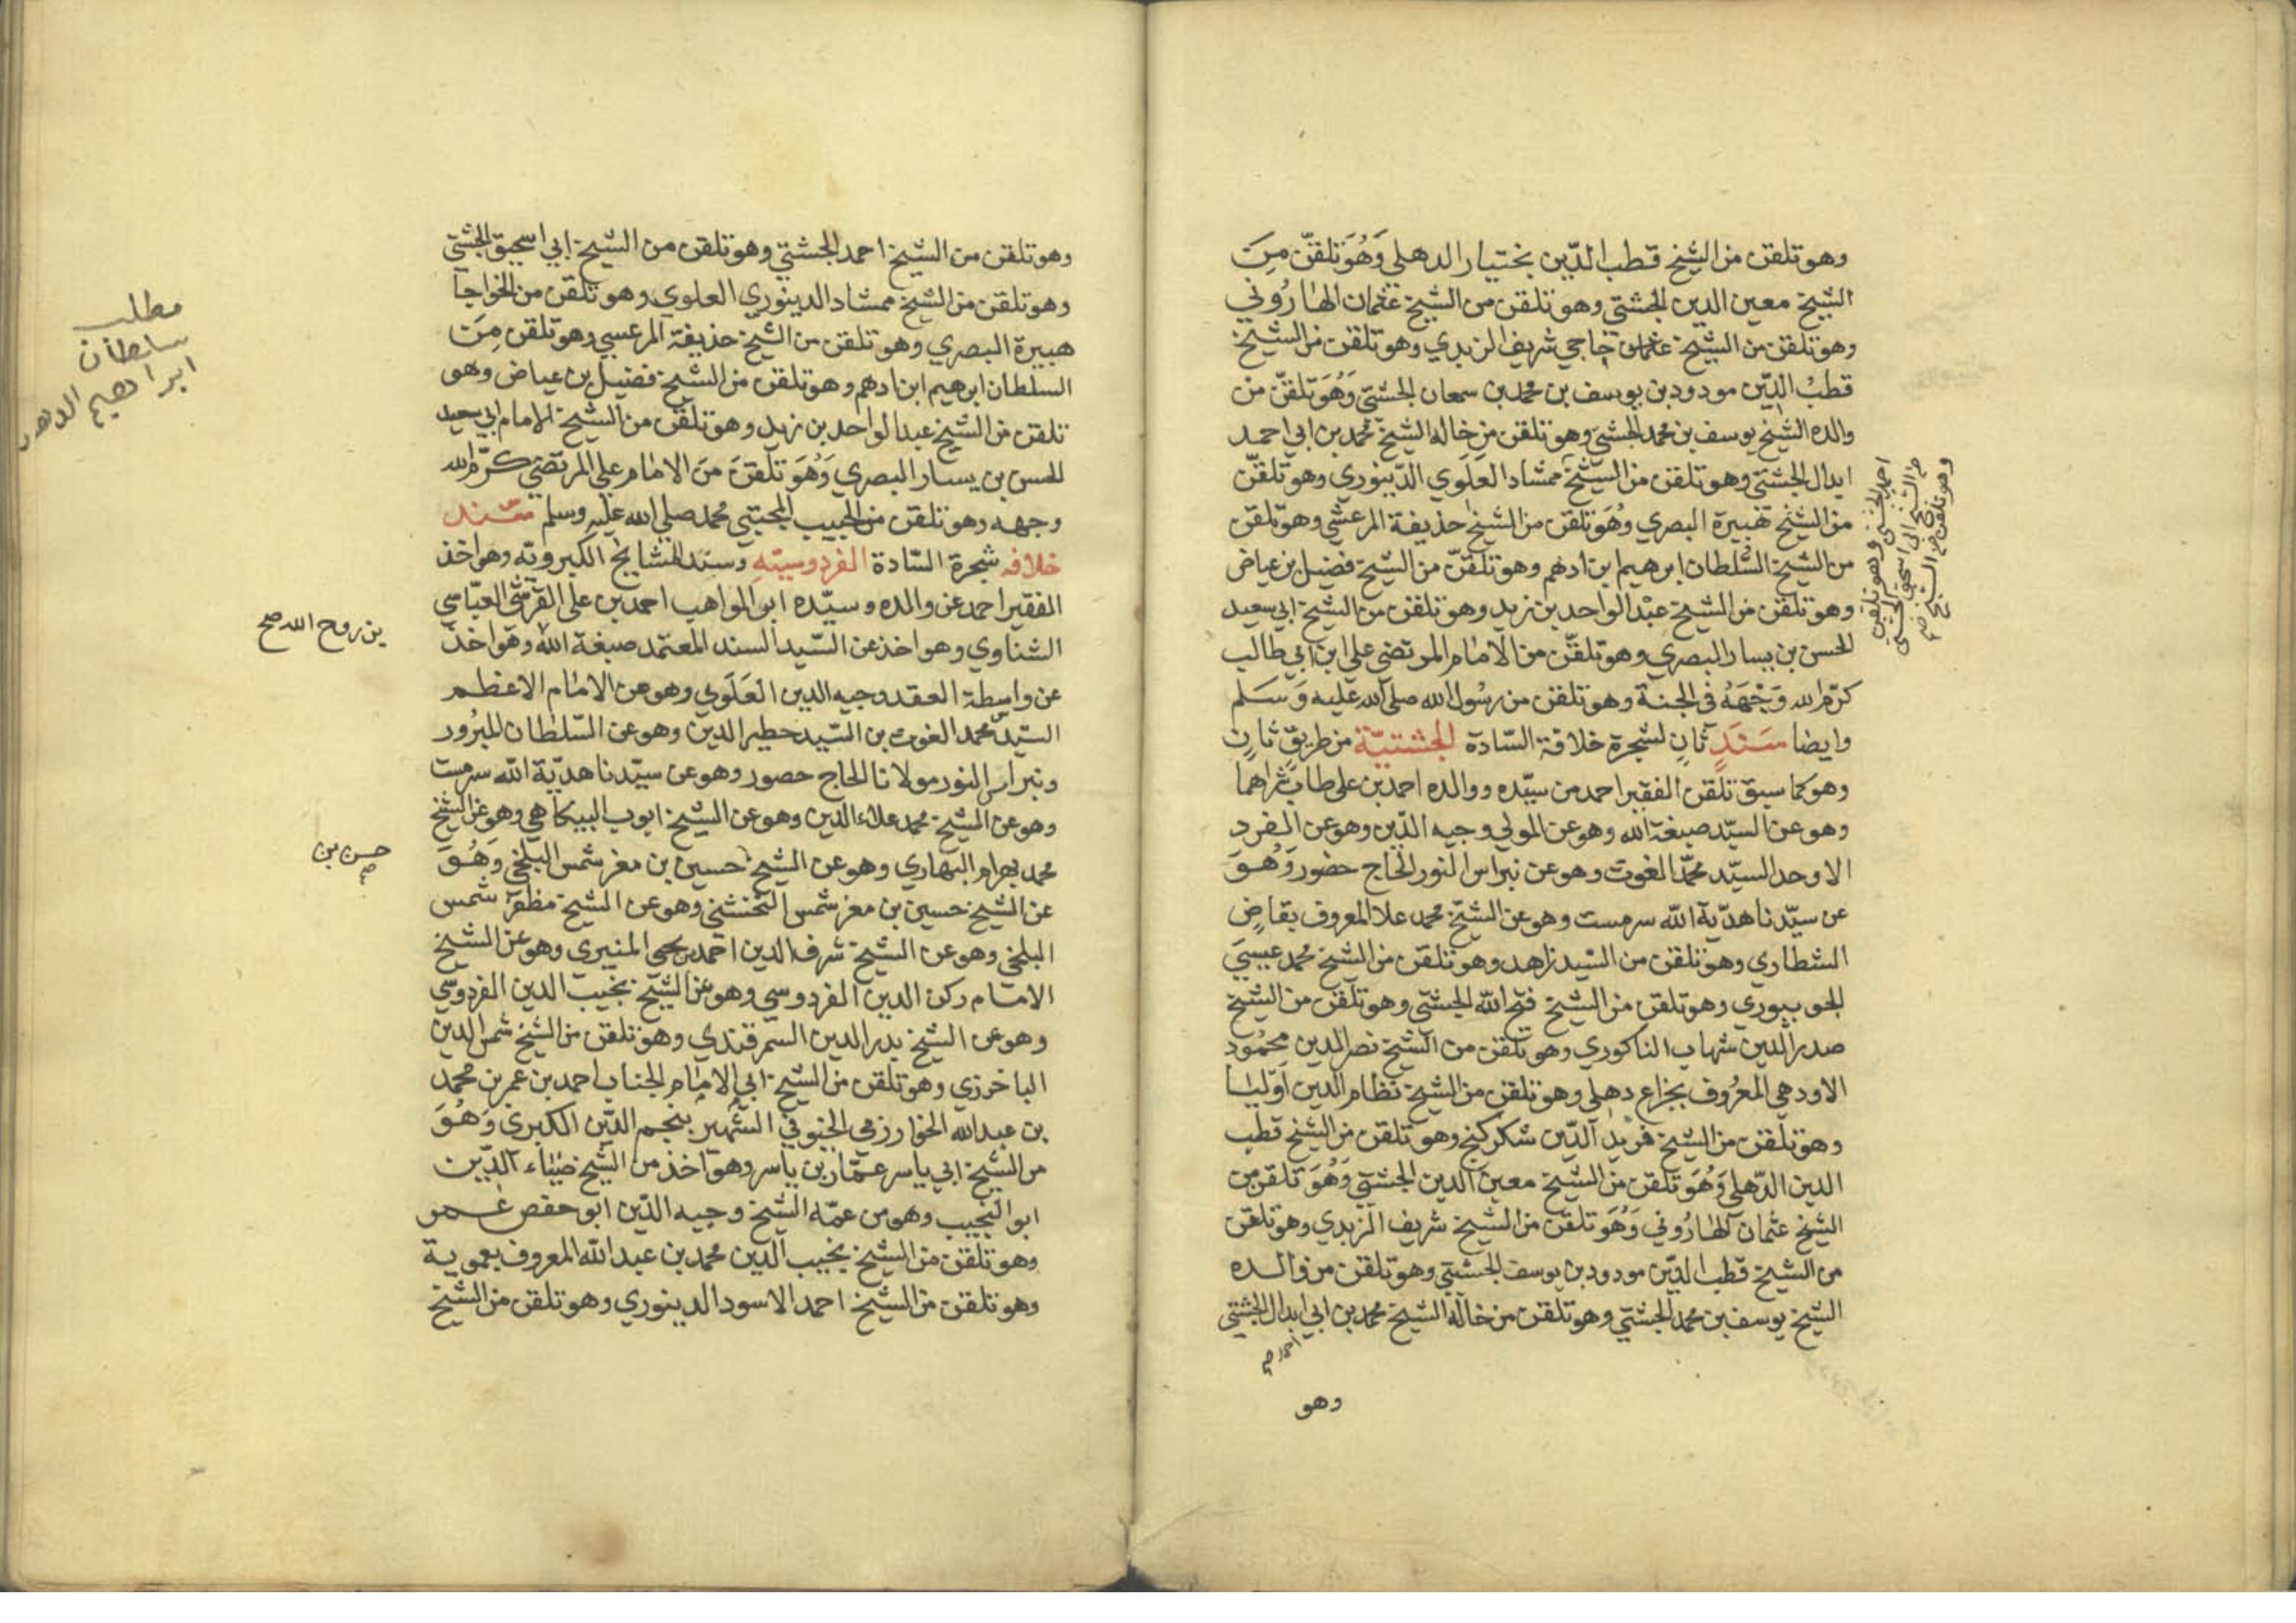 وهو تلقن من الشيخ قطب الدّين بختيار الدهلي وَهُوَ تلقّن مِنَ
الشيخ معين الدين الجشتي وهو تلقن من الشيخ عثمان الهارُوني
وهو تلقن من الشيخ عثمان حاجي شريف الزبدي وهو تلقن من الشيخ
قطبُ الدّين مودود بن يوسف بن محمد بن سمعان الجشتي وَهُوَ تلقّن من
والده الشيخ يوسف بن محمد الجشتي وهو تلقن من خاله الشيخ محمد بن ابي احمد
ابدال الجشتي وهو تلقن من الشيخ ممشاد العلَوي الدّينوري وهو تلقّن
من الشيخ هبيرة البصري وهُوَ تلقن من الشيخ حذيفة المرعشي وهو تلقن
من الشيخ السُّلطان ابرهيم ابن ادهم وهو تلقّن من الشيخ فضيل بن عياض
وهو تلقن من الشيخ عبْد الواحد بن زيد وهو تلقن من الشيخ ابي سعيد
الحسن بن يسار البصري وهو تلقّن من الامام المرتضي علي ابن ابي طالب
كرّم الله وَجْهَهُ في الجنة وهو تلقن من رسُول الله صلى الله عليه وَسَلم
وايضا سَنَدٍ ثانٍ لشجرة خلافة السّادة الجشتيّة من طريقٍ ثانٍ
وهو كما سبق تلقن الفقير احمد من سيّده ووالده احمد بن علي طابَ ثراهما
وهو عن السيّد صبغة الله وهو عن المولي وجيه الدّين وهو عن الفرد
الاوحد السيّد محمّد الغوث وهو عن نبراس النور الحاج حضور وَهُوَ
عن سيّدنا هديّة الله سرمست وهو عن الشيخ محمد علا المعروف بقاضٍ
الشطاري وهو تلقن من السّيد زاهد وهو تلقن من الشيخ محمد عيسيَ
الجوببوري وهو تلقن من الشيخ فتح الله الجشتي وهو تلقن من الشيخ
صدر الدين شهاب الناكوري وهو تلقن من الشيخ نصر الدين محمُود
الاودهي المعرُوف بجراع دهلي وهو تلقن من الشيخ نظام الدين اوّليا
وهو تلقن من الشيخ فريد الدّين شكركنج وهو تلقن من الشيخ قطب
الدين الدّهلي وَهُوَ تلقن من الشّيخ معين الدين الجشتي وَهُوَ تلقن من
الشيخ عثمان الهارُوني وَهُوَ تلقّن من الشيخ شريف الزبدي وهو تلقن
من الشيخ قطب الدّين مودود بن يوسف الجشتي وهو تلقن من والده
الشيخ يوسف بن محمد الجشتي وهو تلقن من خاله الشيخ محمد بن ابي ابدال الجشتي
احمد صح
وهو
وهو تلقن من الشيخ
من الشيخ ابي اسحق الجشتي
احمد الجشتي وهو تلقن
وهو تلقن من الشيخ احمد الجشتي وهو تلقن من الشيخ ابي اسحق الجشتي
وهو تلقن من الشيخ ممشاد الدينوري العلوي وهو تلقن من الخواجا
هبيرة البصري وهو تلقن من الشيخ حذيفة المرعسي وهو تلقن مِنَ
السلطان ابرهيم ابن ادهم وهو تلقن من الشيخ فضيل بن عياض وهو
تلقن من الشيخ عبد الواحد بن زيد وهو تلقن من الشيخ الامام ابي سعيد
الحسن بن يسار البصري وَهُوَ تلقنَ منَ الامام علي المرتضي كرّم الله
وجهه وهو تلقن من الحبيب المجتبي محمد صلى الله عليه وسلم سند
خلافه شجرة السّادة الفردوسيّه وسند المشايخ الكبرويّه وهو اخذ
الفقير احمد عن والده وسيّده ابو المواهب احمد بن علي القرشي العبّاسي
الشناوي وهو اخذ عن السّيد السند المعتمد صبغة الله وهو اخذ
عن واسطة العقد وجيه الدين العَلَوي وهو عن الامام الاعظم
السيّد محمد الغوث بن السّيد خطير الدين وهو عن السّلطان المبرُور
ونبراس النور مولانا الحاج حصور وهو عن سيّدنا هديّة الله سرمست
وهو عن الشيخ محمد علاء الدين وهو عن الشيخ ايوب البيكاهي وهو عن الشيخ
محمد بهرام البهاري وهو عن الشيخ حسين بن معز شمس البلخي وَهُوَ
عن الشيخ حسين بن معز شمس وهو عن الشيخ مظفر شمس
البلخي وهو عن الشيخ شرف الدين احمد بن يحيي المنيري وهو عن الشيخ
الامام ركن الدين الفردوسي وهو عن الشيخ نجيب الدين الفردوسي
وهو عن الشيخ بدر الدين السمرقندي وهو تلقن من الشيخ شمس الدين
الباخرزي وهو تلقن من الشيخ ابي الامام الجناب احمد بن عمر بن محمد
بن عبد الله الخوارزمي الخيوفي الشهير بنجم الدّين الكبري وَهُوَ
من الشيخ ابي ياسر عمّار بن ياسر وهو اخذ من الشيخ ضياء الدّين
ابو النجيب وهو من عمّه الشيخ وجيه الدّين ابو حفص عمر
وهو تلقن من الشيخ نجيب الدين محمد بن عبد الله المعروف بعموية
وهو تلقن من الشيخ احمد الاسود الدينوري وهو تلقن من الشيخ
مطلب
سلطان
ابراهيم الدهم
بن روح الله صح
حسن بن
صح